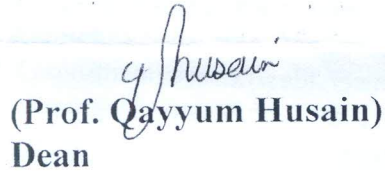 y husain
(Prof. Qayyum Husain)
Dean